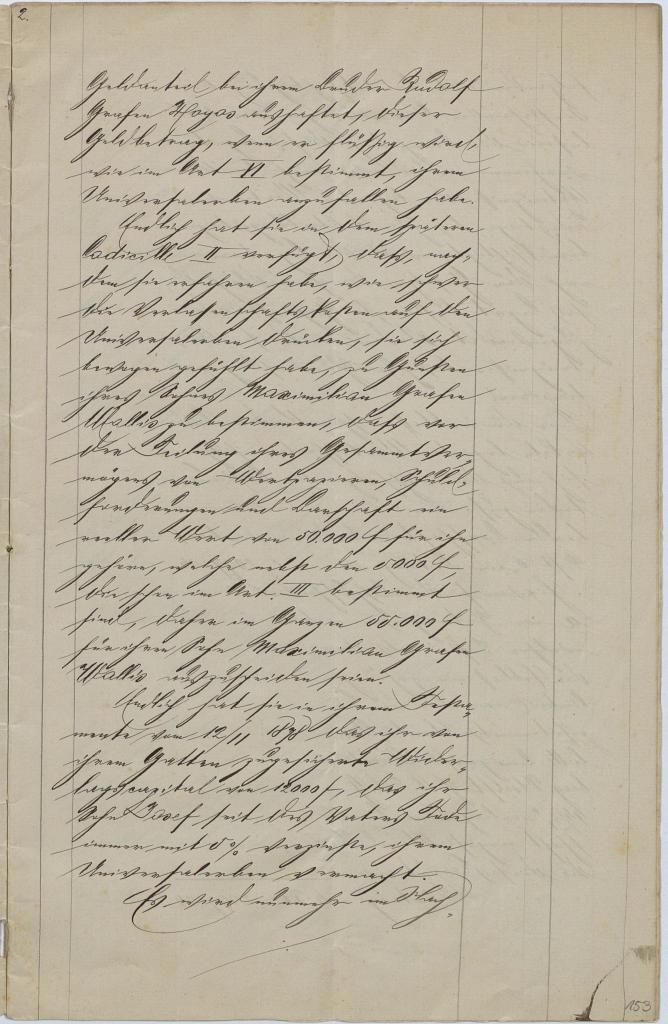 2.
Geldanteil bei ihrem Bruder Rudolf
Grafen Hoyos aushaftet, dieser
Geldbetrag, wenn er flüßig wird,
wie im Art VI bestimmt, ihrem
Universalerben anzufallen habe.
Endlich hat sie in dem späteren
Codicille II verfügt, daß, nach-
dem sie erfahren habe, wie schwer
die Verlassenschaftskosten auf den
Universalerben drücken, sie sich
bewogen gefühlt habe, zu Gunsten
ihres Sohnes Maximilian Grafen
Wallis zu bestimmen, daß vor
der Teilung ihres Gesammtver-
mögens, von Wertpapieren, Schuld-
forderungen und Barschaft ein
reeller Wert von 50.000 f für ihn
gehöre, welche nebst den 5000 f,
die schon im Art. III bestimmt
sind, daher im Ganzen 55.000 f
für ihren Sohn Maximilian Grafen
Wallis auszuscheiden seien.
Endlich hat sie in ihrem Testa-
mente vom 12/11 das ihr von
ihrem Gatten zugesicherte Wider-
lagscapital von 12000 f, das ihr
Sohn Josef seit des Vaters Tode
immer mit 5 % verzinste, ihrem
Universalerben vermacht.
Es wird nunmehr im Nach-
153